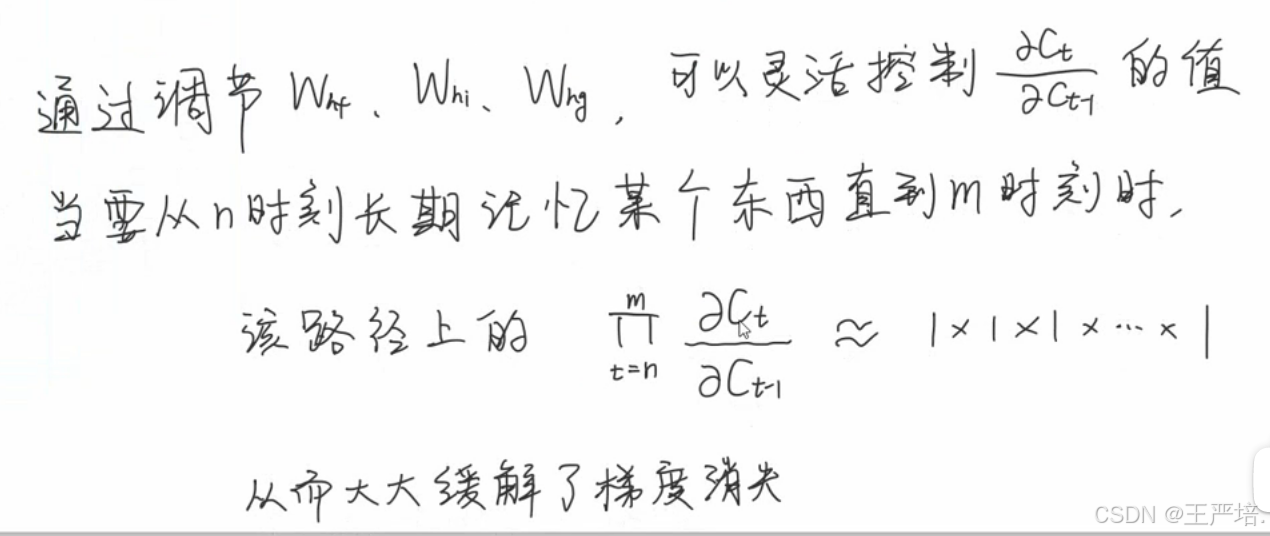 通过调节 W_hf、W_hi、W_hg，可以灵活控制 ∂C_t/∂C_{t-1} 的值
当要从n时刻长期记忆某个东西直到m时刻时，
该路径上的 ∏_{t=n}^{m} ∂C_t/∂C_{t-1} ≈ 1×1×1×…×1
从而大大缓解了梯度消失
CSDN @王严培.